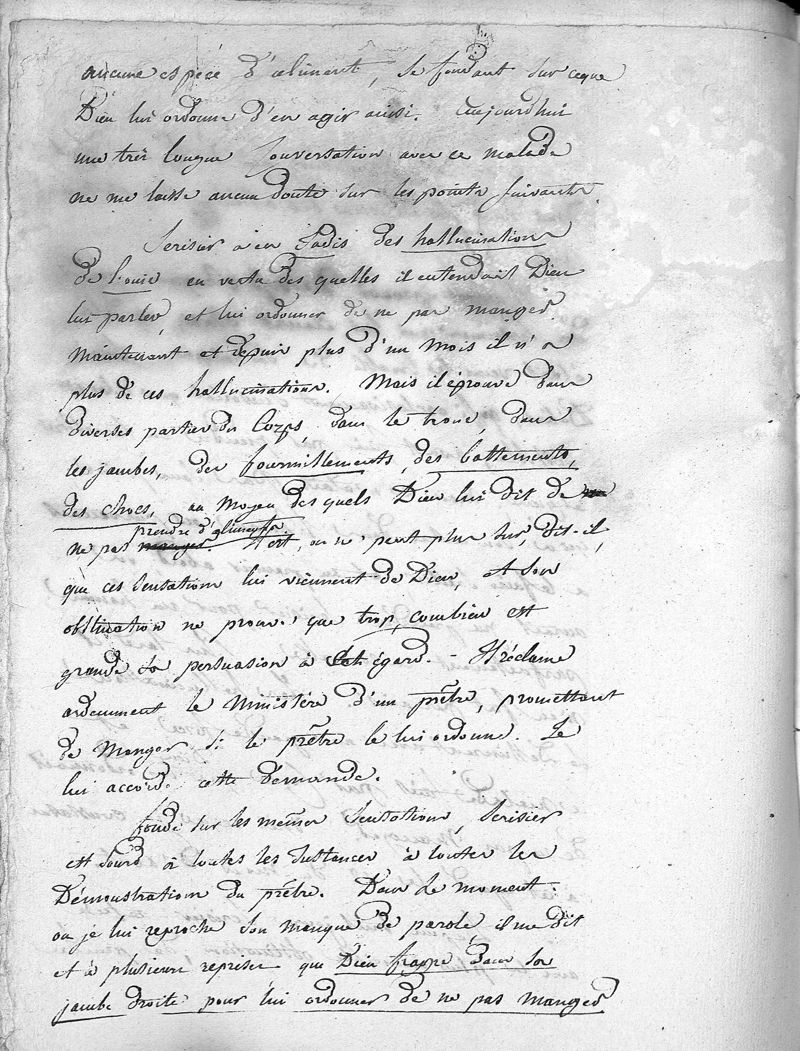 aucune espéce d'aliment, se fondant sur ceque
Dieu lui ordonne d'en agir ainsi. Aujourdhui
une très longue Conversation avec ce malade
ne me laisse aucun doute sur les points suivants.
Serisier a eu Jadis des hallucinations
de l'ouïe en vertu des quelles il entendait Dieu
lui parler, et lui ordonner de ne pas manger.
Maintenant et depuis plus d'un mois il n'a
plus de ces hallucinations. Mais il éprouve dans
diverses parties du Corps, dans le tronc, dans
les jambes, des fourmillements, des battements,
des chocs, au moyen des quels Dieu lui dit de
prendre d'aliments.
ne pas manger. Il est, on ne peut plus sur, dit-il,
que ces sensations lui viennent de Dieu, et son
obstination ne prouve que trop, combien est
grande sa persuasion à cet égard. - Il réclame
ardemment le Ministére d'un prêtre, promettant
de Manger si le prêtre le lui ordonne. Je
lui accorde cette demande.
fondé sur les mêmes Sensations, Serisier
est sourd à toutes les instances à toutes les
Démonstrations du prêtre. Dans le moment
ou je lui reproche son manque de parole il me dit
et à plusieurs reprises que Dieu frappe dans sa
jambe droite pour lui ordonner de ne pas manger